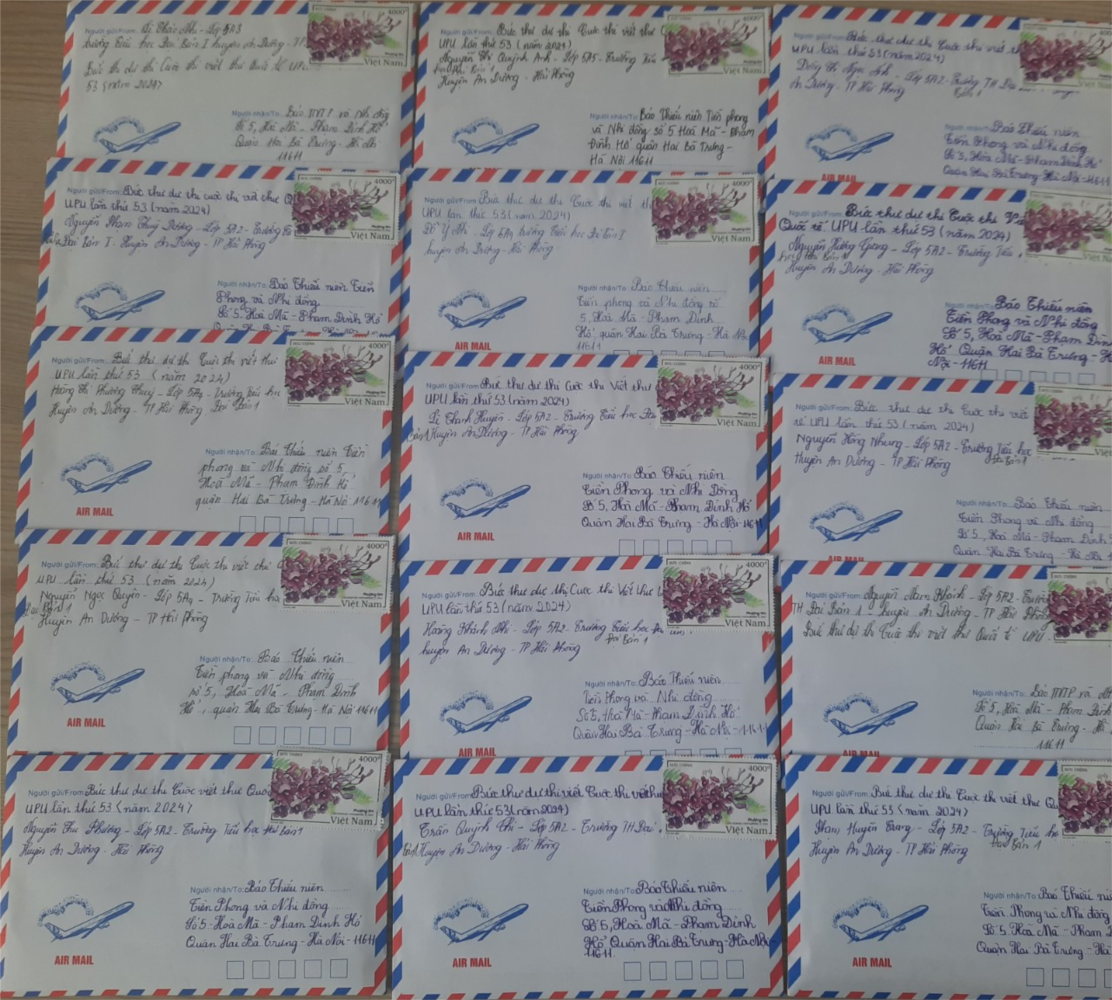 Lớp 5A3
trường Tiểu học Đại Bản I huyện An Dương - TP
Bức thư dự thi Cuộc thi viết thư Quốc tế UPU
53 (năm 2024)
4000đ
Phượng tím
Việt Nam
Người nhận/To: Báo TNTP và Nhi đồng
Số 5, Hoà Mã - Phạm Đình Hổ
Quận Hai Bà Trưng - Hà Nội
11611
Bức thư dự thi Cuộc thi viết thư
UPU lần thứ 53 (năm 2024)
Nguyễn Thị Quỳnh Anh - Lớp 5A5 - Trường Tiểu
Huyện An Dương - Hải Phòng
4000đ
Việt Nam
Báo Thiếu niên Tiền phong
và Nhi đồng số 5 Hoà Mã - Phạm
Đình Hổ quận Hai Bà Trưng -
Hà Nội 11611
Bức thư dự thi Cuộc thi viết th
UPU lần thứ 53 (năm 2024)
Lớp 5A2 - Trường TH Đại
An Dương - TP Hải Phòng
Người nhận/To: Báo Thiếu niên
Tiền Phong và Nhi đồng
Số 5, Hòa Mã - Phạm Đình Hổ
Quận Hai Bà Trưng Hà Nội - 11611
AIR MAIL
Người gửi/From: Bức thư dự thi cuộc thi viết thư Qu
UPU lần thứ 53 (năm 2024)
Nguyễn Phạm Thuỳ Dương - Lớp 5A2 - Trường
Đại Bản I - Huyện An Dương - TP Hải Phòng
MẶC CHÍNH
4000đ
Phượng tím
Việt Nam
Người nhận/To: Báo Thiếu niên Tiền
Phong và Nhi đồng
Số 5, Hoà Mã - Phạm Đình Hổ
Quận Hai Bà Trưng
Người gửi/From: Bức thư dự thi Cuộc thi viết th
UPU lần thứ 53 (năm 2024)
Đỗ Ý Nhi - Lớp 5A4 trường Tiểu học Đại Bản I
huyện An Dương - Hải Phòng
4000đ
Phượng tím
Việt Nam
Người nhận/To: Báo Thiếu niên
Tiền phong và Nhi đồng số
5, Hoà Mã - Phạm Đình
Hổ quận Hai Bà Trưng - Hà N
11611
AIR MAIL
Người gửi/From: Bức thư dự thi Cuộc thi V
Quốc tế UPU lần thứ 53 (năm 2024)
Nguyễn Hương Giang - Lớp 5A2 - Trường Tiểu
Huyện An Dương - Hải Phòng
Người nhận/To: Báo Thiếu niên
Tiền Phong và Nhi đồng
Số 5, Hoà Mã - Phạm Đình
Hổ Quận Hai Bà Trưng - H
Nội - 11611
AIR MAIL
Người gửi/From: Bức thư dự thi Cuộc thi viết thư
UPU lần thứ 53 (năm 2024)
Hoàng Thị Phương Thuỳ - Lớp 5A4 - Trường Tiểu học
Huyện An Dương - TP Hải Phòng Đại Bản 1
4000đ
Phượng tím
Việt Nam
Báo Thiếu niên Tiền
phong và Nhi đồng số 5,
Hoà Mã - Phạm Đình Hổ
quận Hai Bà Trưng - Hà Nội 11611
AIR MAIL
Người gửi/From: Bức thư dự thi Cuộc thi Viết thư
UPU lần thứ 53 (năm 2024)
Lê Thanh Huyền - Lớp 5A2 - Trường Tiểu học Đại
Bản 1 Huyện An Dương - TP Hải Phòng
4000đ
Phượng tím
Việt Nam
Người nhận/To: Báo Thiếu niên
Tiền Phong và Nhi Đồng
Số 5, Hoà Mã - Phạm Đình Hổ
Quận Hai Bà Trưng - Hà Nội - 11611
AIR MAIL
Người gửi/From: Bức thư dự thi Cuộc thi viết
tế UPU lần thứ 53 (năm 2024)
Nguyễn Hồng Nhung - Lớp 5A2 - Trường Tiểu học
Huyện An Dương - TP Hải Phòng Đại Bản 1
Người nhận/To: Báo Thiếu niên
Tiền Phong và Nhi đồng
Số 5, Hoà Mã - Phạm Đình
Quận Hai Bà Trưng - Hà
AIR MAIL
Người gửi/From: Bức thư dự thi Cuộc thi viết thư
UPU lần thứ 53 (năm 2024)
Nguyễn Ngọc Quyên - Lớp 5A4 - Trường Tiểu học
Đại Bản 1 Huyện An Dương - TP Hải Phòng
4000đ
Phượng tím
Việt Nam
Người nhận/To: Báo Thiếu niên
Tiền phong và Nhi đồng
số 5, Hoà Mã - Phạm Đình
Hổ, quận Hai Bà Trưng - Hà Nội 11611
AIR MAIL
Người gửi/From: Bức thư dự thi Cuộc thi Viết thư
UPU lần thứ 53 (năm 2024)
Hoàng Khánh Nhi - Lớp 5A2 - Trường Tiểu học
Đại Bản 1
huyện An Dương - TP Hải Phòng
4000đ
Phượng tím
Việt Nam
Người nhận/To: Báo Thiếu niên
Tiền Phong và Nhi đồng
Số 5, Hoà Mã - Phạm Đình Hổ
Quận Hai Bà Trưng - Hà Nội - 11611
AIR MAIL
Người gửi/From: Nguyễn Nam Khánh - Lớp 5A2 - Trường
TH Đại Bản 1 - huyện An Dương - TP Hải Phòng
Bức thư dự thi Cuộc thi viết thư Quốc tế UPU
Người nhận/To: Báo TNTP và Nhi
Số 5, Hoà Mã - Phạm Đình
Quận Hai Bà Trưng - Hà
11611
AIR MAIL
Người gửi/From: Bức thư dự thi Cuộc viết thư Quốc
UPU lần thứ 53 (năm 2024)
Nguyễn Thu Phương - Lớp 5A2 - Trường Tiểu học Đại Bản 1
Huyện An Dương - Hải Phòng
4000đ
Phượng tím
Việt Nam
Người nhận/To: Báo Thiếu niên
Tiền Phong và Nhi đồng
Số 5 - Hoà Mã - Phạm Đình Hổ
Quận Hai Bà Trưng - Hà Nội - 11611
AIR MAIL
Người gửi/From: Bức thư dự thi viết Cuộc thi viết thư
UPU lần thứ 53 (năm 2024)
Trần Quỳnh Chi - Lớp 5A2 - Trường TH Đại
Bản 1 Huyện An Dương - Hải Phòng
4000đ
Phượng tím
Việt Nam
Người nhận/To: Báo Thiếu niên
Tiền Phong và Nhi đồng
Số 5, Hoà Mã - Phạm Đình
Hổ Quận Hai Bà Trưng - Hà Nội -
11611
AIR MAIL
Người gửi/From: Bức thư dự thi Cuộc thi viết thư Qu
UPU lần thứ 53 (năm 2024)
Huyền Trang - Lớp 5A2 - Trường Tiểu học
Đại Bản 1
Huyện An Dương - TP Hải Phòng
Người nhận/To: Báo Thiếu niên
Tiền Phong và Nhi đồng
Số 5, Hoà Mã - Phạm Đ
Quận Hai Bà Trưng - Hà Nội
AIR MAIL